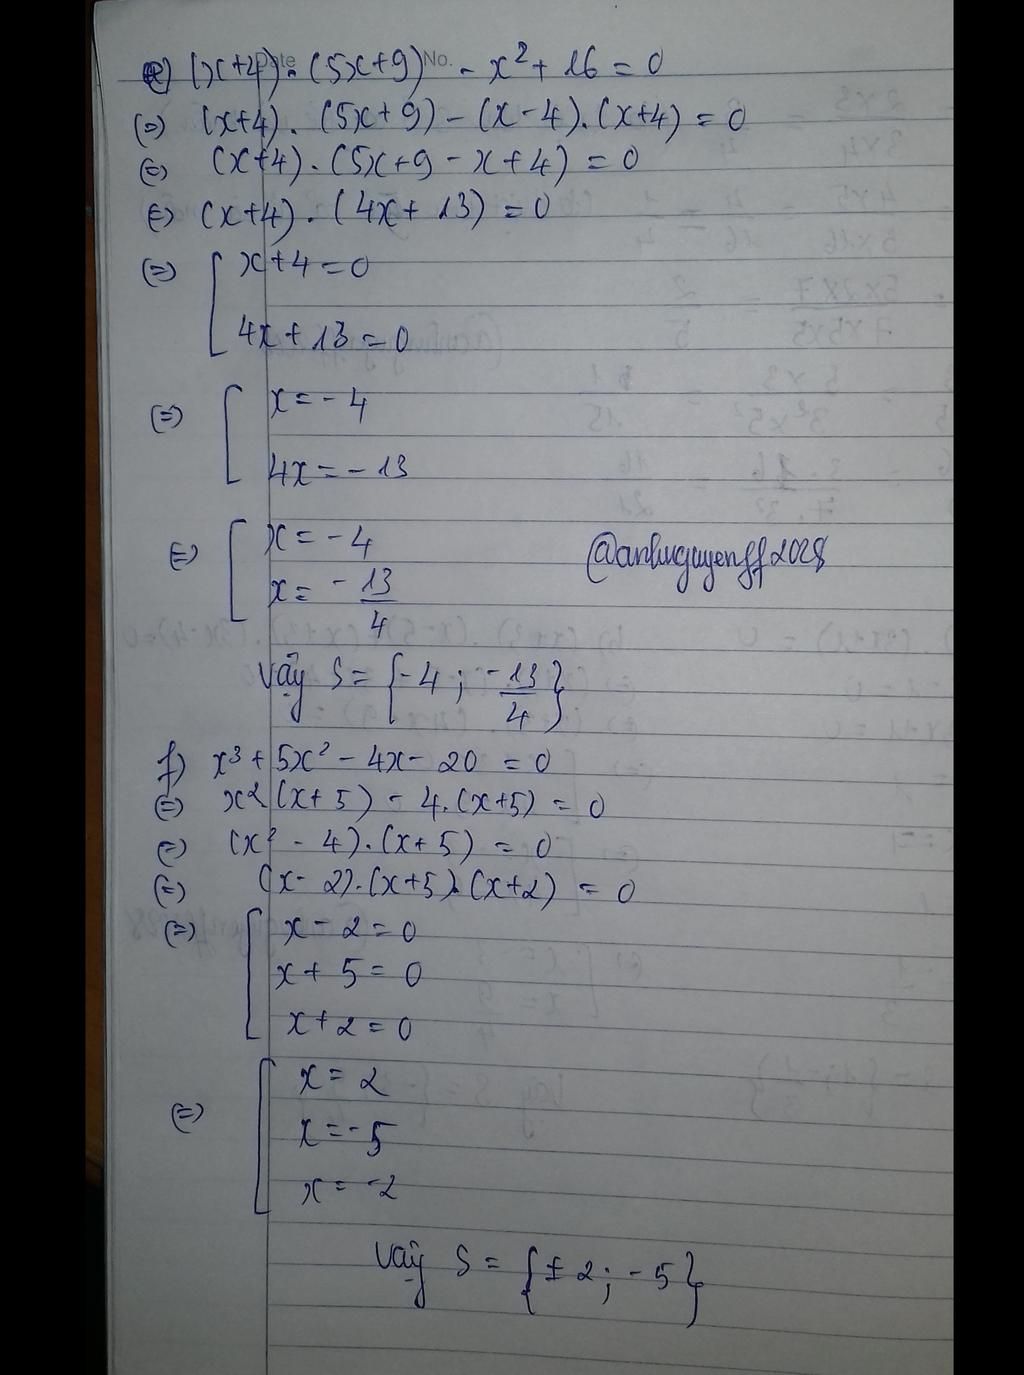 e) (x+4).(5x+9) - x² + 16 = 0
Date No.
(=) (x+4). (5x+9) - (x-4).(x+4) = 0
(=) (x+4).(5x+9 - x+4) = 0
(=) (x+4). (4x+13) = 0
(=) [ x+4=0
4x+13=0
(=) [ x=-4
4x=-13
(=) [ x=-4
x= -13/4
@anhnguyenff2028
Vậy S= {-4; -13/4}
f) x³ + 5x² - 4x - 20 = 0
(=) x²(x+5) - 4.(x+5) = 0
(=) (x² - 4).(x+5) = 0
(=) (x-2).(x+5).(x+2) = 0
(=) [ x-2=0
x+5=0
x+2=0
(=) [ x=2
x=-5
x=-2
Vậy S= {±2; -5}